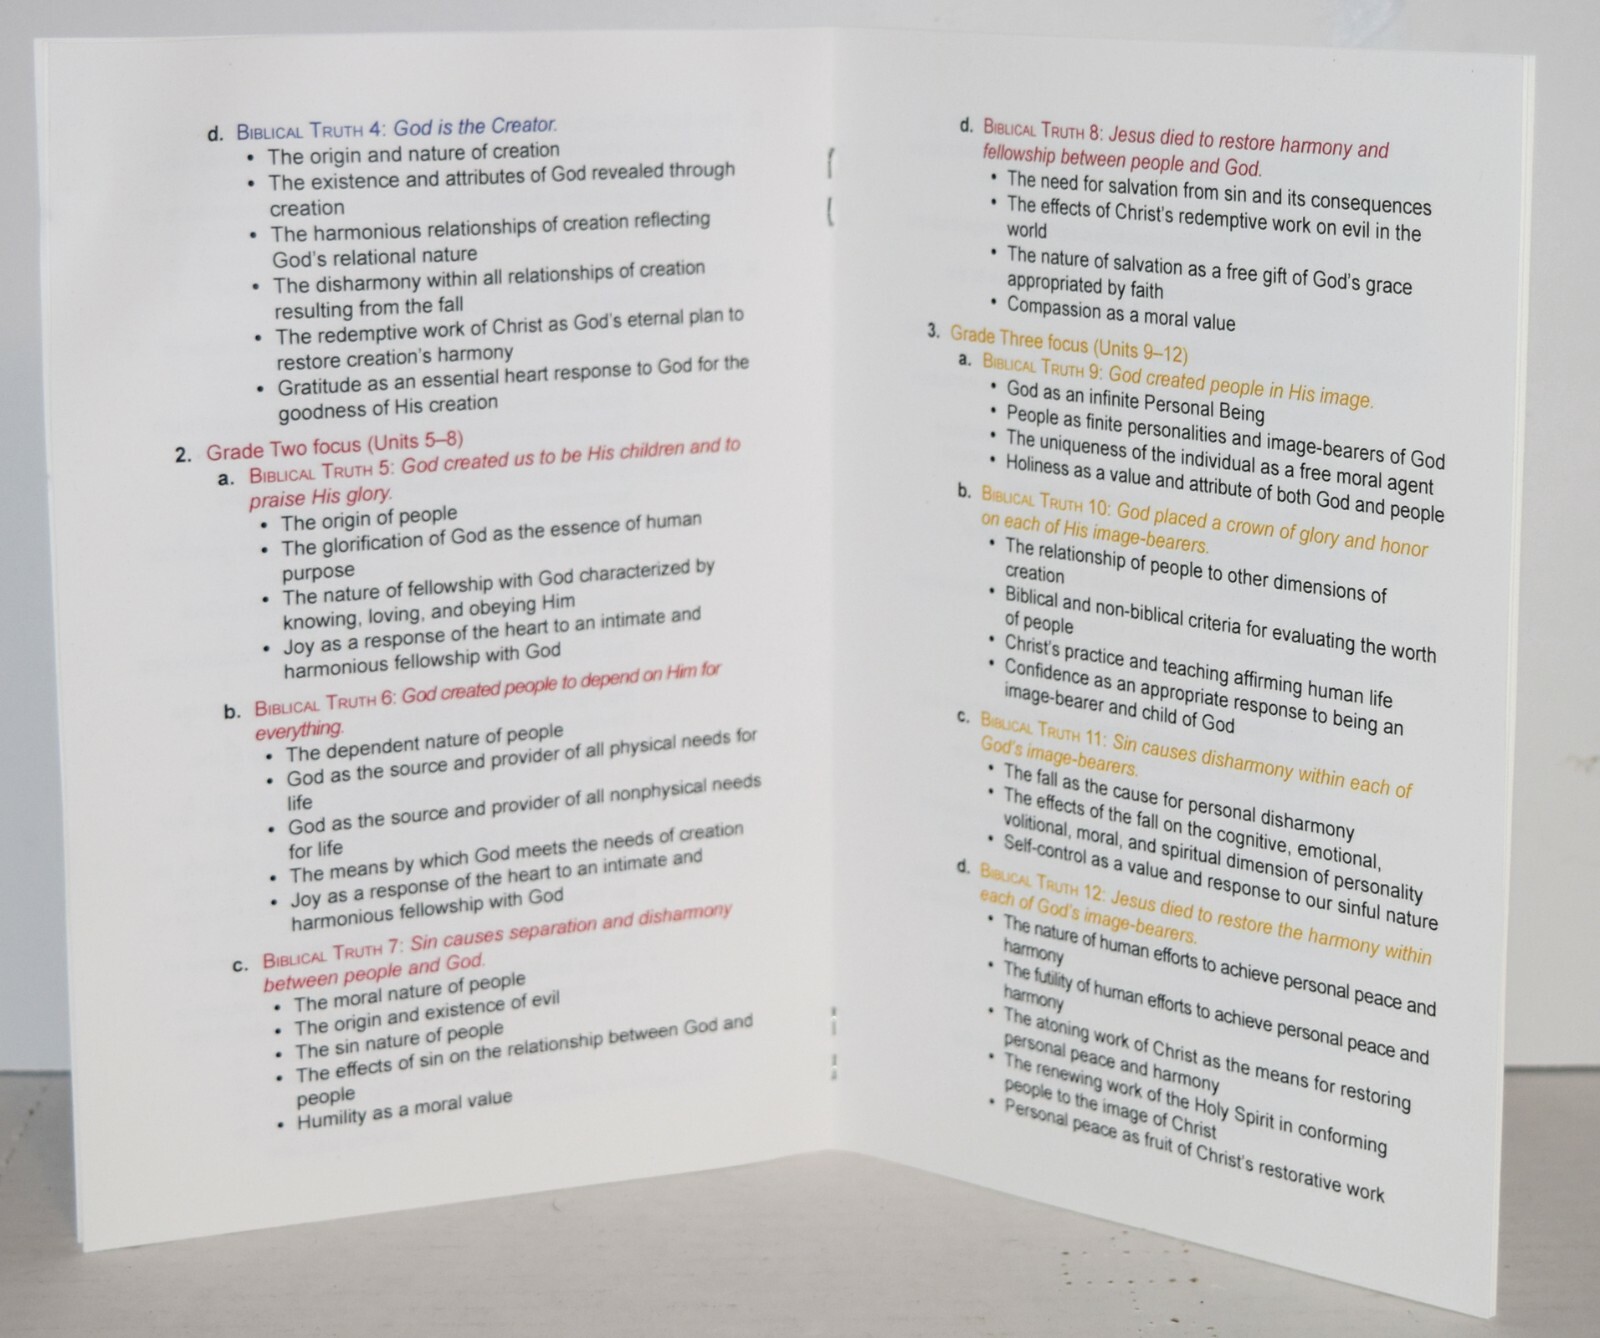 d. BIBLICAL TRUTH 4: God is the Creator.
• The origin and nature of creation
• The existence and attributes of God revealed through
creation
• The harmonious relationships of creation reflecting
God's relational nature
• The disharmony within all relationships of creation
resulting from the fall
• The redemptive work of Christ as God's eternal plan to
restore creation's harmony
• Gratitude as an essential heart response to God for the
goodness of His creation
2. Grade Two focus (Units 5–8)
a. BIBLICAL TRUTH 5: God created us to be His children and to
praise His glory.
• The origin of people
• The glorification of God as the essence of human
purpose
• The nature of fellowship with God characterized by
knowing, loving, and obeying Him
• Joy as a response of the heart to an intimate and
harmonious fellowship with God
b. BIBLICAL TRUTH 6: God created people to depend on Him for
everything.
• The dependent nature of people
• God as the source and provider of all physical needs for
life
• God as the source and provider of all nonphysical needs
for life
• The means by which God meets the needs of creation
• Joy as a response of the heart to an intimate and
harmonious fellowship with God
c. BIBLICAL TRUTH 7: Sin causes separation and disharmony
between people and God.
• The moral nature of people
• The origin and existence of evil
• The sin nature of people
• The effects of sin on the relationship between God and
people
• Humility as a moral value
d. BIBLICAL TRUTH 8: Jesus died to restore harmony and
fellowship between people and God.
• The need for salvation from sin and its consequences
• The effects of Christ's redemptive work on evil in the
world
• The nature of salvation as a free gift of God's grace
appropriated by faith
• Compassion as a moral value
3. Grade Three focus (Units 9–12)
a. BIBLICAL TRUTH 9: God created people in His image.
• God as an infinite Personal Being
• People as finite personalities and image-bearers of God
• The uniqueness of the individual as a free moral agent
• Holiness as a value and attribute of both God and people
b. BIBLICAL TRUTH 10: God placed a crown of glory and honor
on each of His image-bearers.
• The relationship of people to other dimensions of
creation
• Biblical and non-biblical criteria for evaluating the worth
of people
• Christ's practice and teaching affirming human life
• Confidence as an appropriate response to being an
image-bearer and child of God
c. BIBLICAL TRUTH 11: Sin causes disharmony within each of
God's image-bearers.
• The fall as the cause for personal disharmony
• The effects of the fall on the cognitive, emotional,
volitional, moral, and spiritual dimension of personality
• Self-control as a value and response to our sinful nature
d. BIBLICAL TRUTH 12: Jesus died to restore the harmony within
each of God's image-bearers.
• The nature of human efforts to achieve personal peace and
harmony
• The futility of human efforts to achieve personal peace and
harmony
• The atoning work of Christ as the means for restoring
personal peace and harmony
• The renewing work of the Holy Spirit in conforming
people to the image of Christ
• Personal peace as fruit of Christ's restorative work